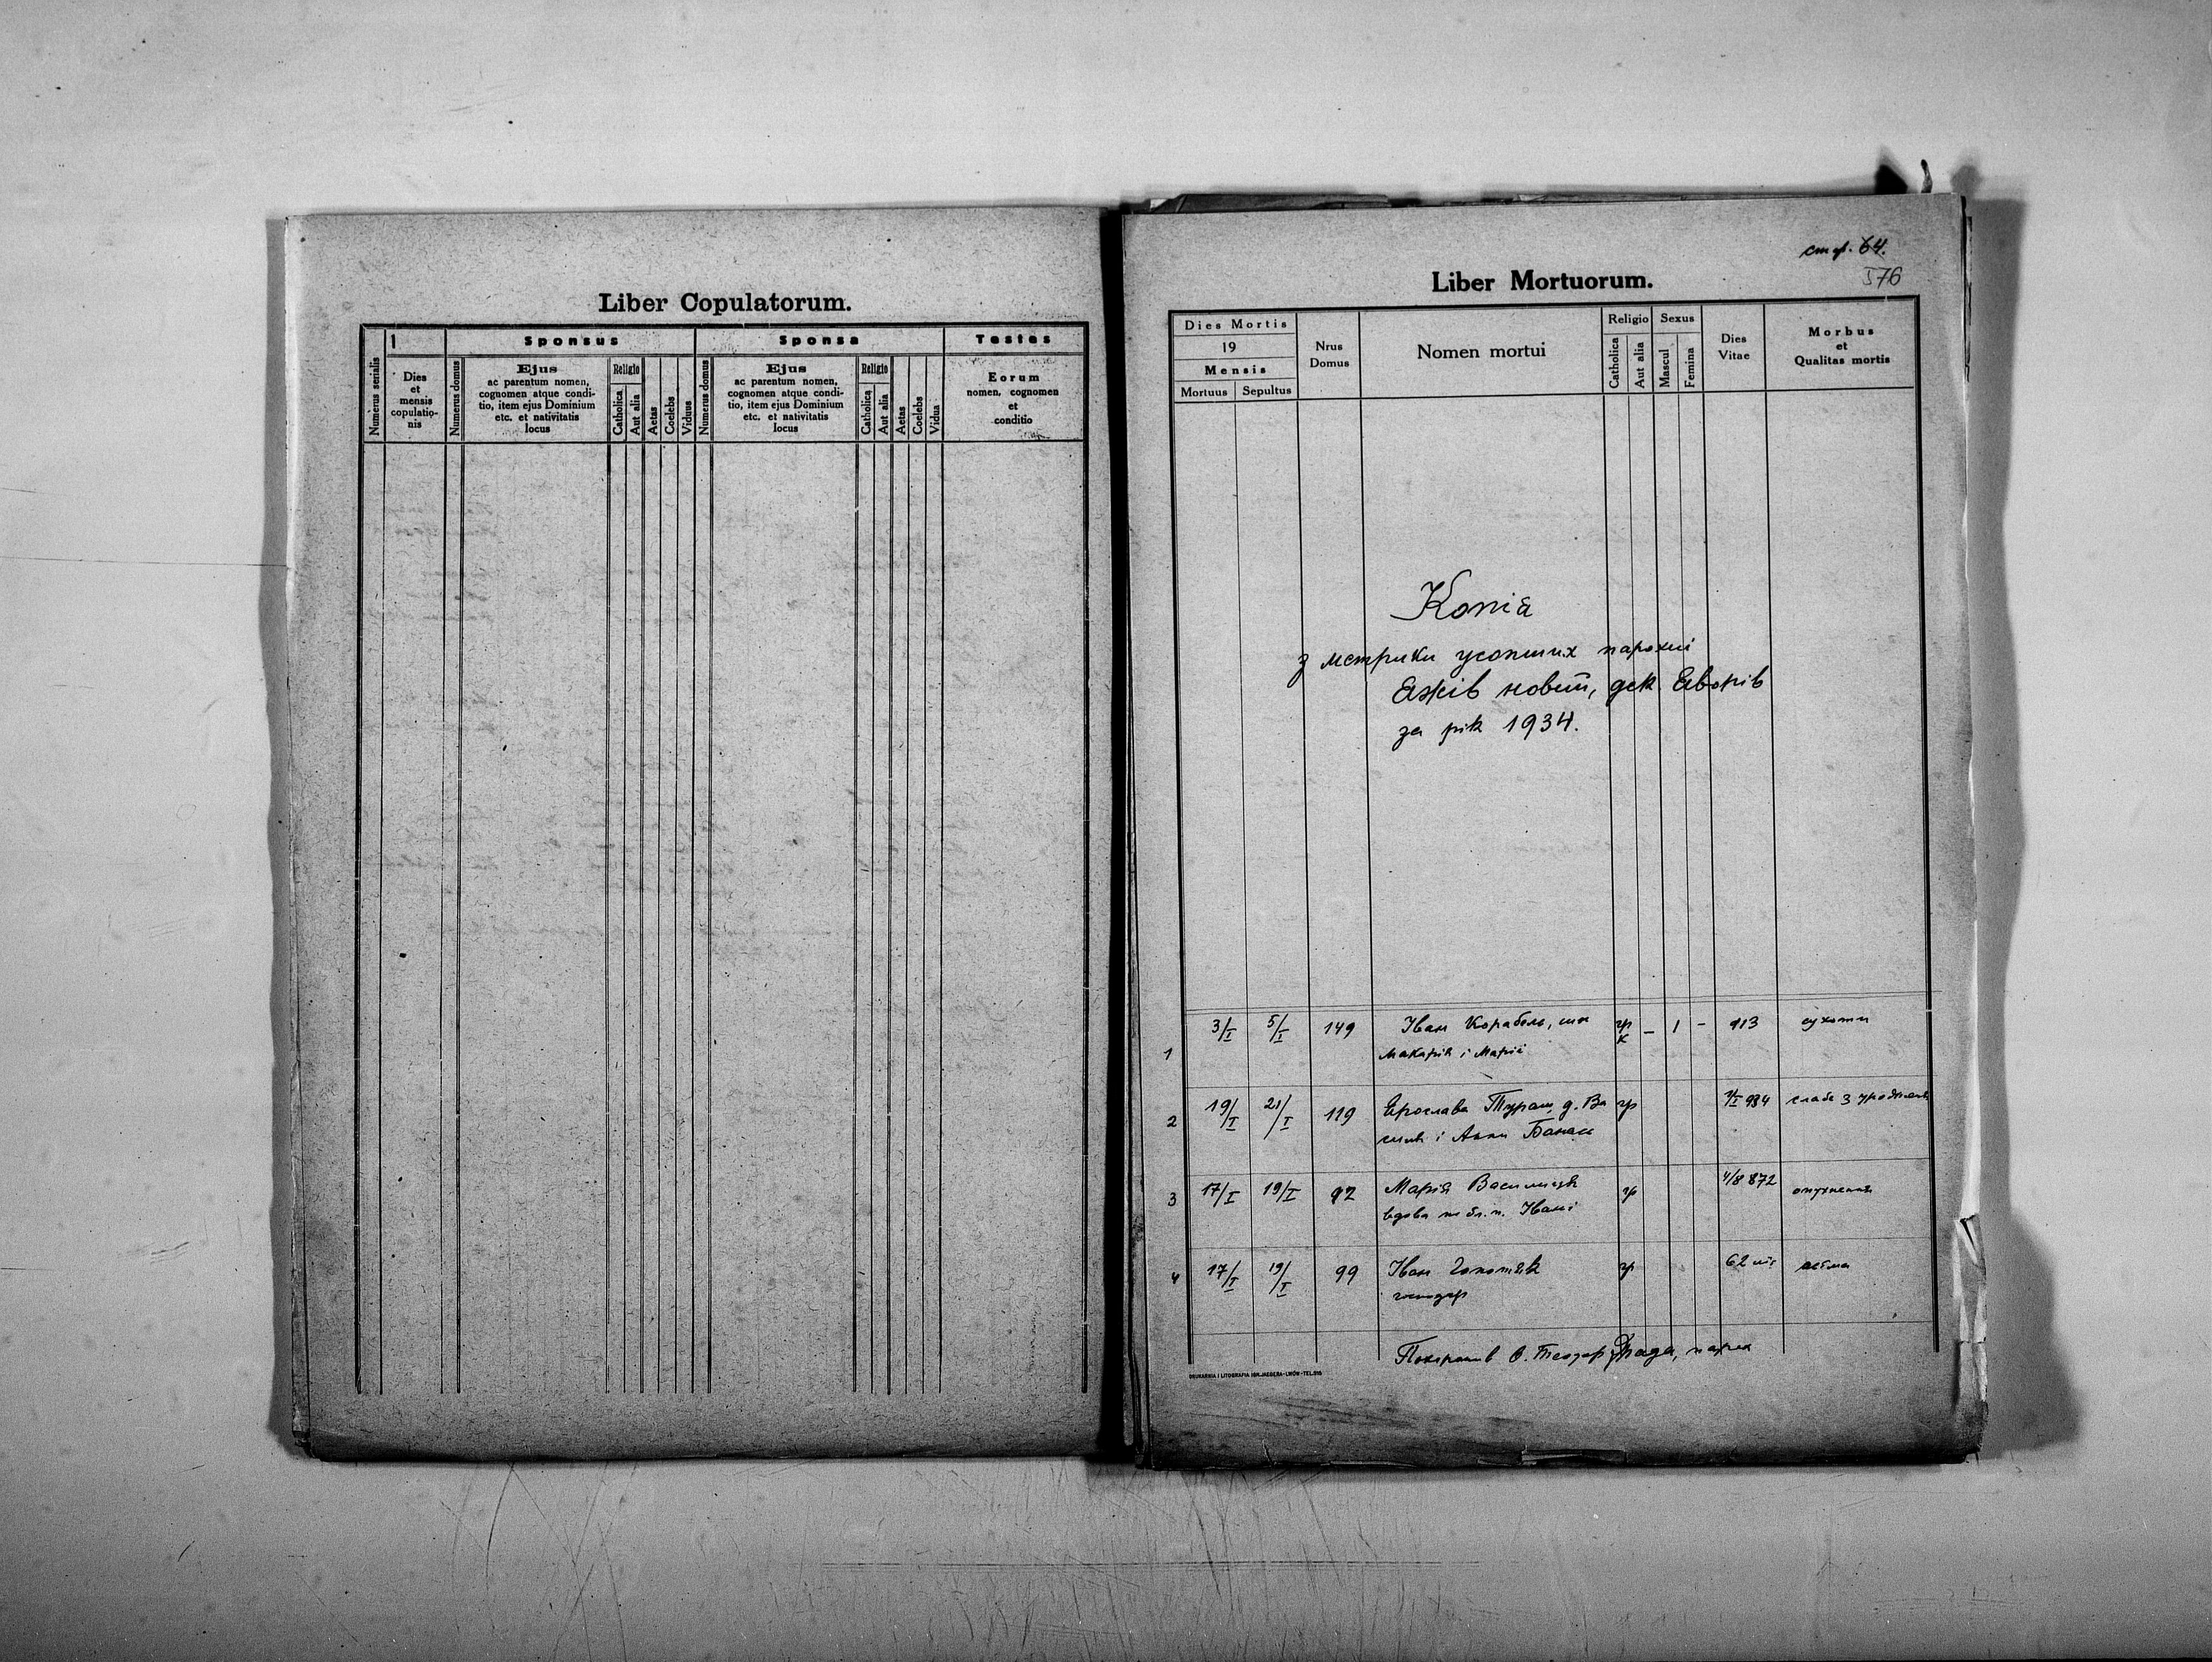 Liber Copulatorum.
Numerus serialis
1
Dies
et
mensis
copulatio-
nis
Sponsus
Numerus domus
Ejus
ac parentum nomen,
cognomen atque condi-
tio, item ejus Dominium
etc. et nativitatis
locus
Religio
Catholica
Aut alia
Aetas
Coelebs
Viduus
Sponsa
Numerus domus
Ejus
ac parentum nomen,
cognomen atque condi-
tio, item ejus Dominium
etc. et nativitatis
locus
Religio
Catholica
Aut alia
Aetas
Coelebs
Vidua
Testes
Eorum
nomen, cognomen
et
conditio
стор. 64.
376
Liber Mortuorum.
Dies Mortis
19
Mensis
Mortuus
Sepultus
Nrus
Domus
Nomen mortui
Religio
Catholica
Aut alia
Sexus
Mascul
Femina
Dies
Vitae
Morbus
et
Qualitas mortis
Копія
з метрики усопших парохії
Яжів новий, дек. Яворів
за рік 1934.
1 3/I 5/I 149 Іван Корабель, гр к – 1 – 913 сухоти
Макарія і Марії
2 19/I 21/I 119 Ярослава д. Ва гр 934 слабе з уродження
силя і Анни Банах
3 17/I 19/I 92 Марія гр 4/8 872 опухнення
вдова по бл. п. Івані
4 17/I 19/I 99 Іван гр 62 літ астма
господар
О. Теодор парох
DRUKARNIA I LITOGRAFIA IGN. JAEGERA - LWÓW - TEL.